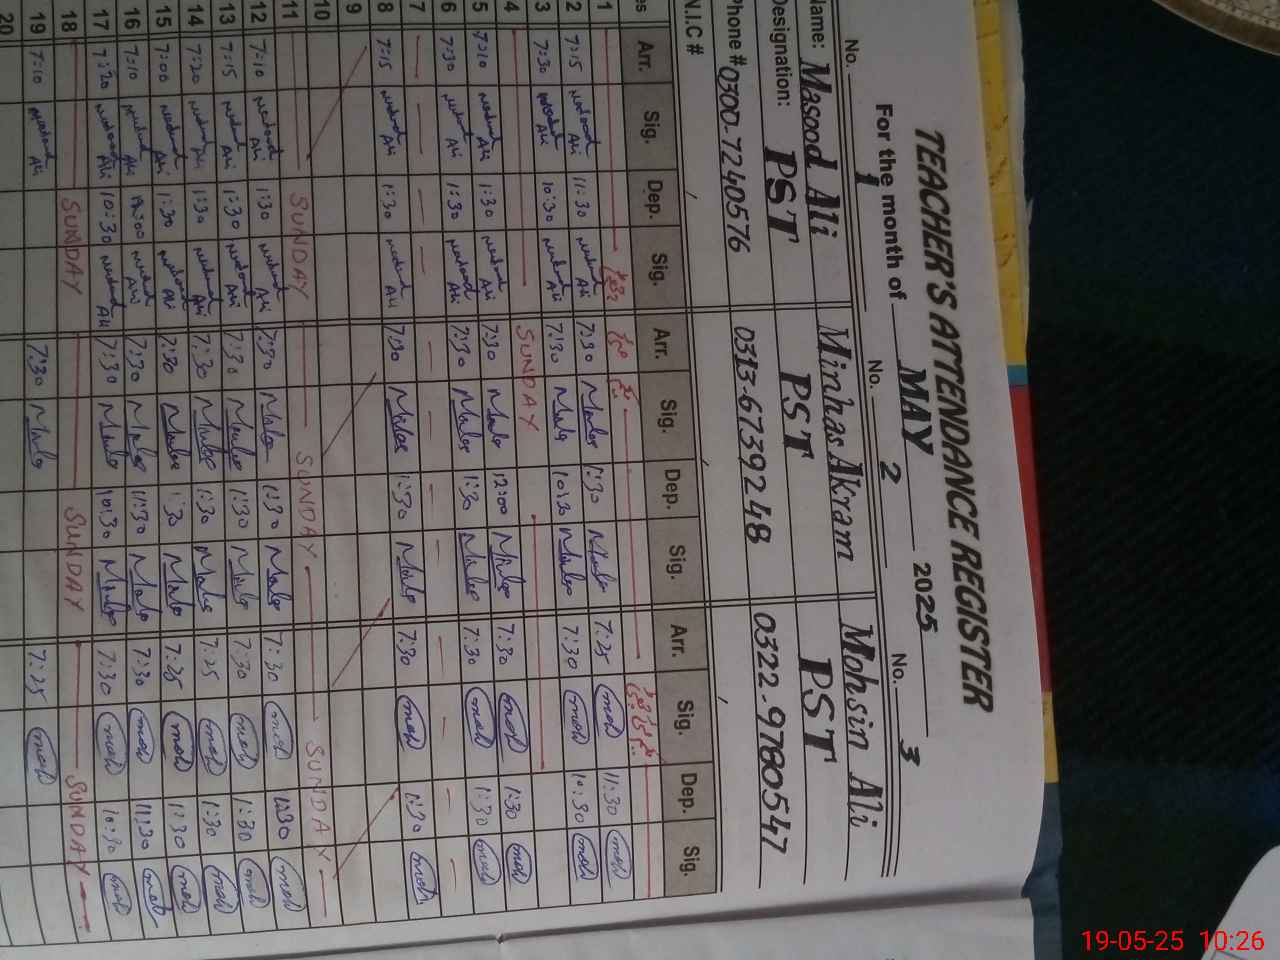 TEACHER'S ATTENDANCE REGISTER
For the month of MAY 2025
No. 1 No. 2 No. 3
Name: Masood Ali Minhas Akram Mohsin Ali
Designation: PST PST PST
Phone # 0300-7240576 0313-6739248 0322-9780547
N.I.C #
es Arr. Sig. Dep. Sig. Arr. Sig. Dep. Sig. Arr. Sig. Dep. Sig.
1
2 7:15 Masood Ali 11:30 Masood Ali 7:30 Minhas 1:30 Minhas 7:25 moh 11:30 moh
3 7:30 Masood Ali 10:30 Masood Ali 7:30 Minhas 10:30 Minhas 7:30 moh 10:30 moh
4 SUNDAY
5 7:10 Masood Ali 1:30 Masood Ali 7:30 Minhas 12:00 Minhas 7:30 moh 1:30 moh
6 7:30 Masood Ali 1:30 Masood Ali 7:30 Minhas 1:30 Minhas 7:30 moh 1:30 moh
7
8 7:15 Masood Ali 1:30 Masood Ali 7:30 Minhas 1:30 Minhas 7:30 moh 1:30 moh
9
10
11 SUNDAY SUNDAY SUNDAY
12 7:10 Masood Ali 1:30 Masood Ali 7:30 Minhas 1:30 Minhas 7:30 moh 1:30 moh
13 7:15 Masood Ali 1:30 Masood Ali 7:30 Minhas 1:30 Minhas 7:30 moh 1:30 moh
14 7:20 Masood Ali 1:30 Masood Ali 7:30 Minhas 1:30 Minhas 7:25 moh 1:30 moh
15 7:00 Masood Ali 1:30 Masood Ali 7:30 Minhas 1:30 Minhas 7:25 moh 1:30 moh
16 7:10 Masood Ali Masood Ali 7:30 Minhas 11:30 Minhas 7:30 moh 11:30 moh
17 7:20 Masood Ali 10:30 Masood Ali 7:30 Minhas 10:30 Minhas 7:30 moh 10:30 moh
18 SUNDAY SUNDAY SUNDAY
19 7:10 Masood Ali 7:30 Minhas 7:25 moh
20
19-05-25 10:26